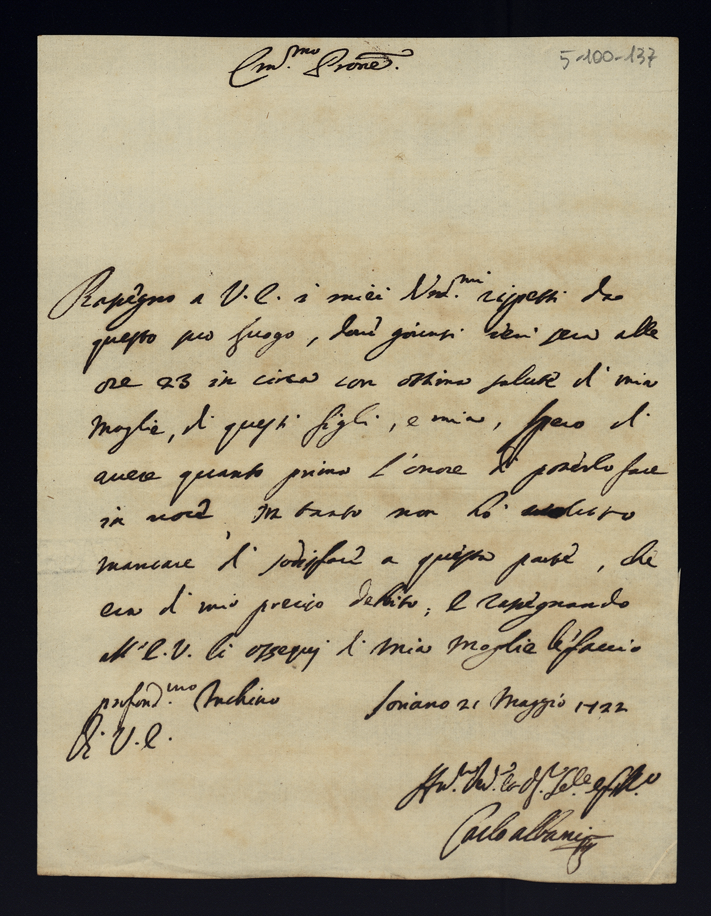 Em.mo Prone.
5-100-137
Rasegno a V. E. i miei Um.mi rispetti da
questo suo luogo, dove giunsi ieri sera alle
ore 23 in circa con ottima salute di mia
Moglie, di questi figli, e mia, spero di
avere quanto prima l'onore di poterlo fare
in voce In tanto non hò voluto
mancare di sodisfare a questa parte, che
era di mio preciso debito; E rasegnando
All'E.V. li ossequj di mia Moglie le faccio
profond.mo Inchino Soriano 21 Maggio 1722
Di V. E.
Carlo Albani